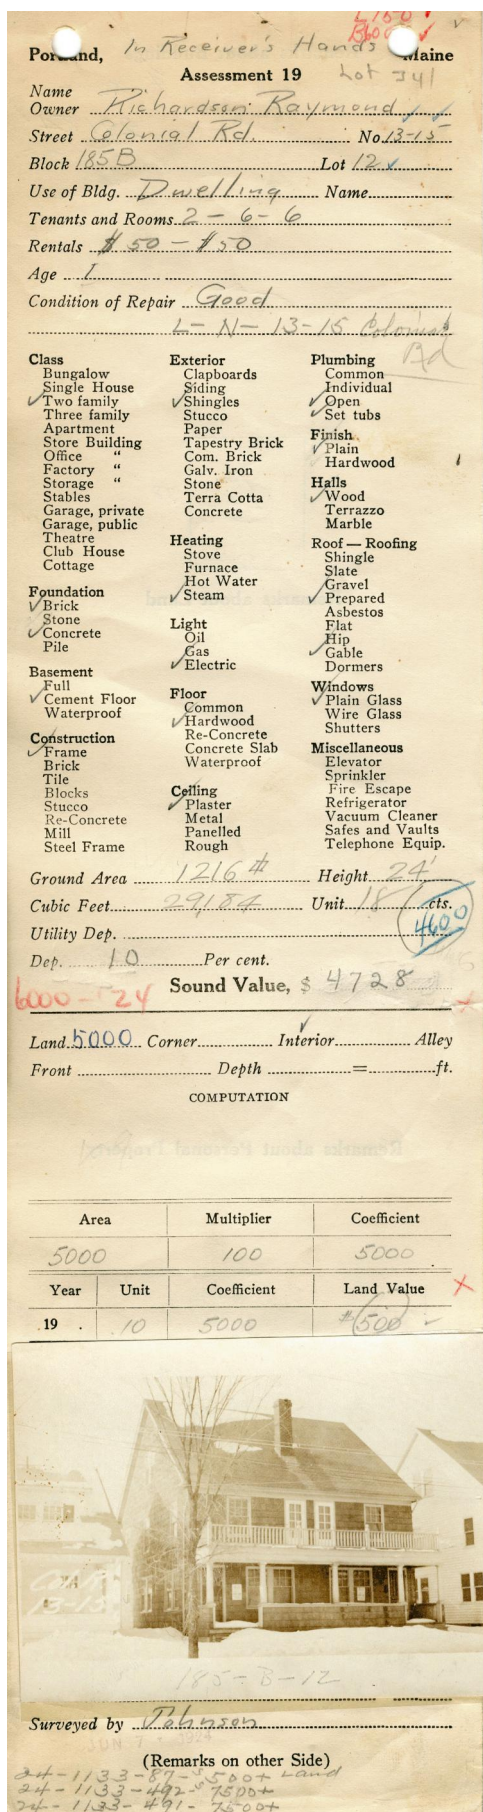 L 150
B 600
Portland, In Receiver's Hands Maine
Assessment 19 Lot 341
Name
Owner Richardson Raymond
Street Colonial Rd. No. 13-15
Block 185B Lot 12
Use of Bldg. Dwelling Name
Tenants and Rooms 2 - 6 - 6
Rentals $50 - $50
Age 1
Condition of Repair Good
L - N - 13-15 Colonial Rd
Class
Bungalow
Single House
✓ Two family
Three family
Apartment
Store Building
Office "
Factory "
Storage "
Stables
Garage, private
Garage, public
Theatre
Club House
Cottage
Foundation
✓ Brick
Stone
✓ Concrete
Pile
Basement
Full
✓ Cement Floor
Waterproof
Construction
✓ Frame
Brick
Tile
Blocks
Stucco
Re-Concrete
Mill
Steel Frame
Exterior
Clapboards
Siding
✓ Shingles
Stucco
Paper
Tapestry Brick
Com. Brick
Galv. Iron
Stone
Terra Cotta
Concrete
Heating
Stove
Furnace
Hot Water
✓ Steam
Light
Oil
Gas
✓ Electric
Floor
Common
✓ Hardwood
Re-Concrete
Concrete Slab
Waterproof
Ceiling
✓ Plaster
Metal
Panelled
Rough
Plumbing
Common
Individual
✓ Open
✓ Set tubs
Finish
✓ Plain
Hardwood
Halls
✓ Wood
Terrazzo
Marble
Roof — Roofing
Shingle
Slate
Gravel
✓ Prepared
Asbestos
Flat
Hip
✓ Gable
Dormers
Windows
✓ Plain Glass
Wire Glass
Shutters
Miscellaneous
Elevator
Sprinkler
Fire Escape
Refrigerator
Vacuum Cleaner
Safes and Vaults
Telephone Equip.
Ground Area 1216 Height 24'
Cubic Feet 29,184 Unit 18 cts.
4600
Utility Dep.
Dep. 10 Per cent.
6000 - 24 Sound Value, $ 4728
Land 5000 Corner Interior ✓ Alley
Front Depth = ft.
COMPUTATION
Area Multiplier Coefficient
5000 100 5000
Year Unit Coefficient Land Value
19 . 10 5000 $500
13-15
185-B-12
Surveyed by Johnson
(Remarks on other Side)
24-1133-87-$500+ Land
24-1133-492-$7500+
24-1133-491-7500+